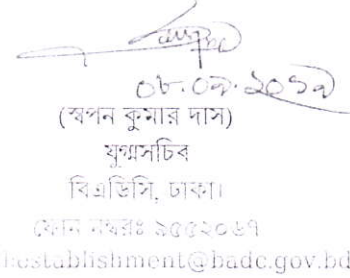 ০৮.০৭.২০১৯
(স্বপন কুমার দাস)
যুগ্মসচিব
বিএডিসি, ঢাকা।
ফোন নম্বরঃ ৯৫৫২০৬৭
establishment@badc.gov.bd